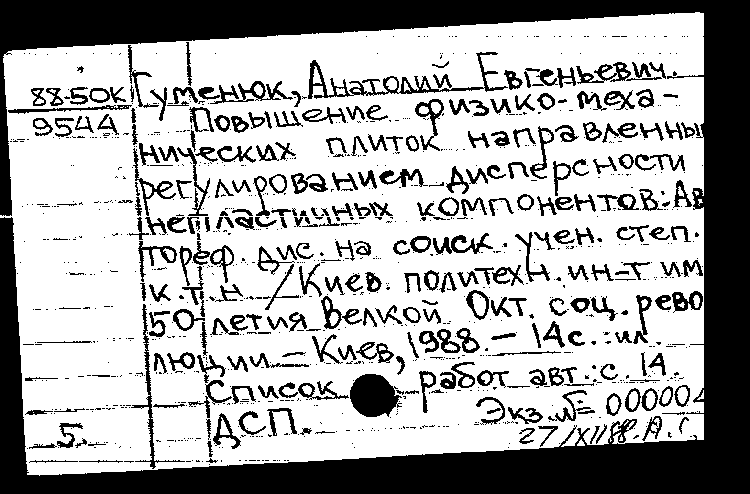 88-50К Гуменюк, Анатолий Евгеньевич.
9544 Повышение физико-меха-
нических плиток направленны
регулированием дисперсности
непластичных компонентов: Ав
тореф. дис. на соиск. учен. степ.
к.т.н /Киев. политехн. ин-т им
50-летия Велкой Окт. соц. рево
люции – Киев, 1988. – 14с.: ил.
Список работ авт.: с. 14.
5. ДСП. Экз. № 000004
27/XII88. А.С,